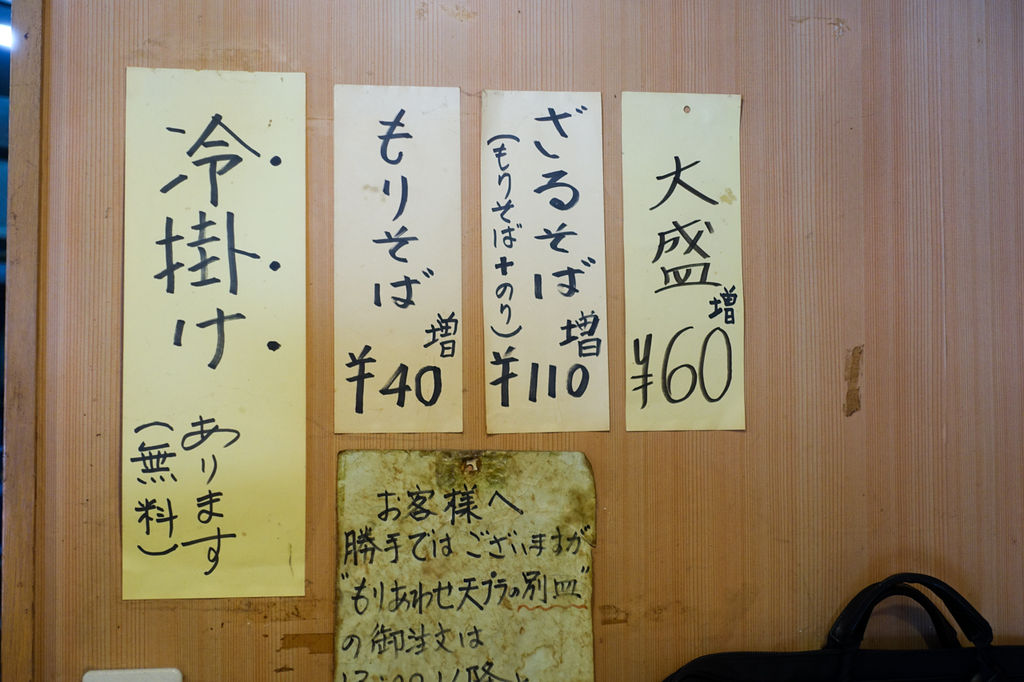 大盛
増
¥60
ざるそば
(もりそば+のり)
増
¥110
もりそば
増
¥40
冷掛け
あります
(無料)
お客様へ
勝手ではございますが
"もりあわせ天プラの別皿"
の御注文は